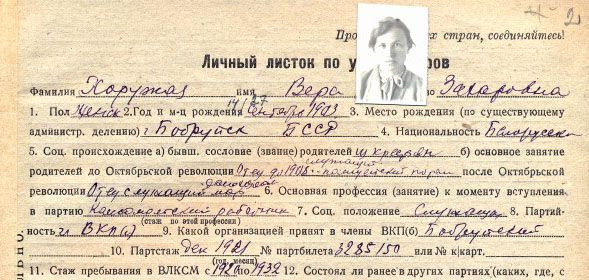 2
Про х стран, соединяйтесь!
Личный листок по у ров
Фамилия Хоружая имя Вера Захаровна
1. Пол женск 2. Год и м-ц рождения 14/27 Сентября 1903 3. Место рождения (по существующему
административ. делению) г. Бобруйск БССР 4. Национальность Белоруска
5. Соц. происхождение а) бывш. сословие (звание) родителей из крестьян б) основное занятие
родителей до Октябрьской революции Отец до 1908 служащий после Октябрьской
революции Отец служащий 6. Основная профессия (занятие) к моменту вступления
в партию комсомольский работник 7. Соц. положение Служащая 8. Партий-
(стаж по этой профессии)
ность чл ВКП(б) 9. Какой организацией принят в члены ВКП(б) Бобруйской
10. Партстаж дек 1921 № партбилета 3285150 или № к|карт.
(год, месяц)
11. Стаж пребывания в ВЛКСМ с 1920 по 1932 12. Состоял ли ранее в других партиях (каких, где, с